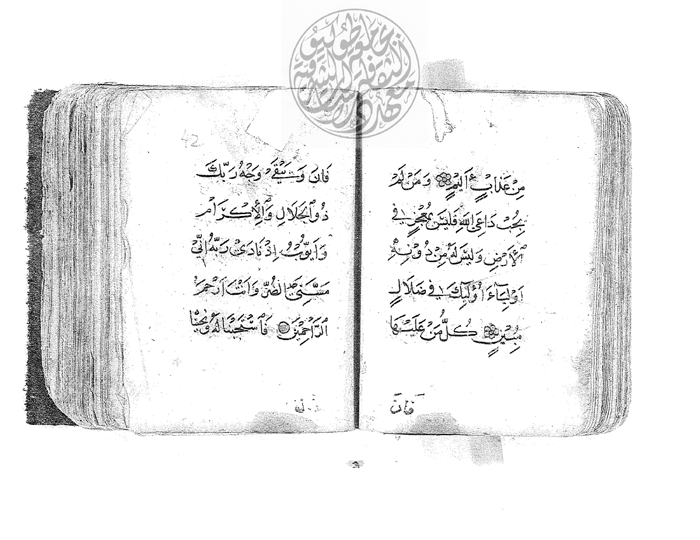 مِنْ عَذَابٍ اَلِيمٍ وَمَنْ لَمْ
يُجِبْ دَاعِيَ اللّٰهِ فَلَيْسَ بِمُعْجِزٍ فِي
الْاَرْضِ وَلَيْسَ لَهُ مِنْ دُونِهِ
اَوْلِيَاءُ اُولٰئِكَ فِي ضَلَالٍ
مُبِينٍ كُلُّ مَنْ عَلَيْهَا
فَانٍ
42
فَانٍ وَيَبْقَى وَجْهُ رَبِّكَ
ذُو الْجَلَالِ وَالْاِكْرَامِ
وَاَيُّوبَ اِذْ نَادَى رَبَّهُ اَنِّي
مَسَّنِيَ الضُّرُّ وَاَنْتَ اَرْحَمُ
الرَّاحِمِينَ فَاسْتَجَبْنَا لَهُ وَنَجَّيْنَا